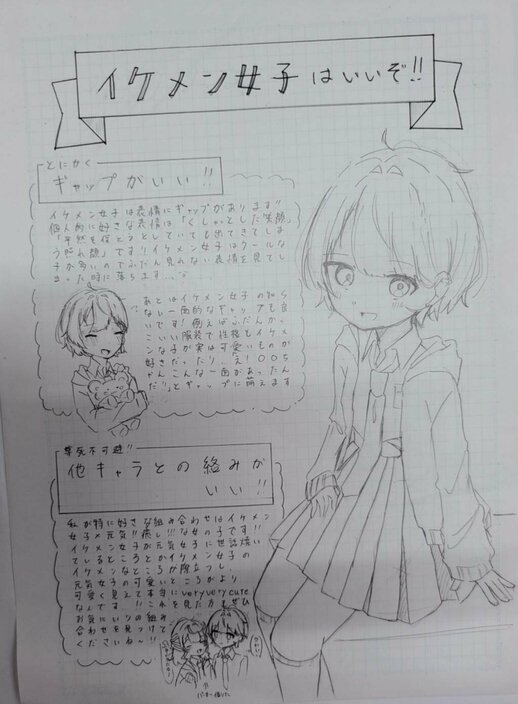 イケメン女子はいいぞ!!
とにかく
ギャップがいい!!
イケメン女子は表情にギャップがあります!!
個人的に好きな表情は「くしゃっとした笑顔」
「平然を保とうとしていても出てきてしま
う照れ顔」です!イケメン女子はクールな
子が多いのでふだん見れない表情を見てし
まった時に落ちます…
あとはイケメン女子の知ら
ない一面的なギャップも良
いです!例えばふだんかっ
こいい服装で性格もイケメ
ンな子が実は可愛いものが
好きだったり。え!〇〇ち
ゃんこんな一面があったん
だ!!とギャップに萌えます
尊死不可避!!
他キャラとの絡みが
いい!!
私が特に好きな組み合わせはイケメン
女子×元気!!癒し!!な女の子です!!
イケメン女子が元気女子に世話焼い
ているところとかイケメン女子の
イケメンなところが際立つし、
元気女子の可愛いところがより
可愛く見えて本当にvery very cute
なんです!!これを見た方もぜひ
お気にいりの組み
合わせを見つけて
くださいね〜!!